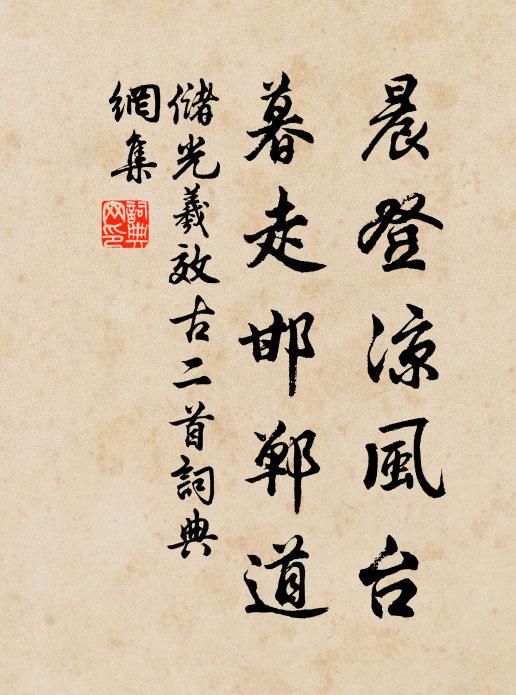 晨登涼風台
暮走邯鄲道
儲光羲效古二首詞典
網集
詞典
网印